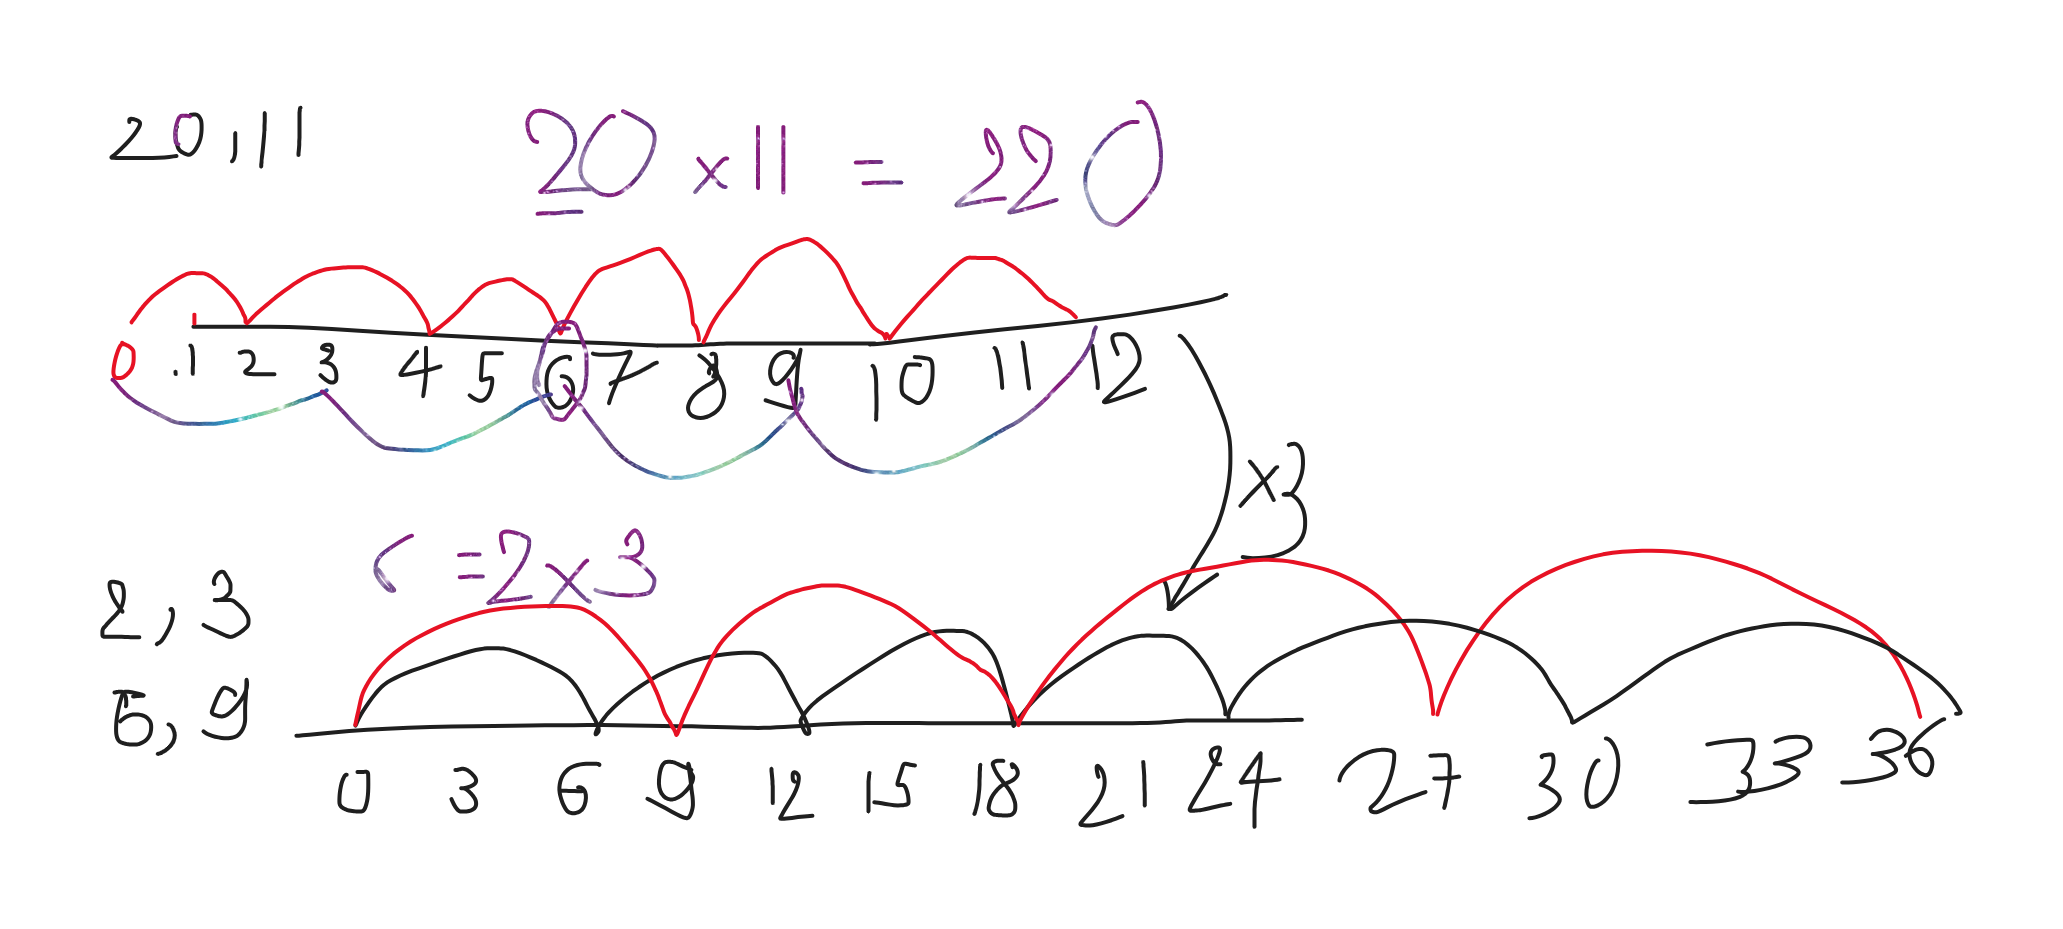 20,11 20 x 11 = 220
0 1 2 3 4 5 6 7 8 9 10 11 12
x3
6 = 2 x 3
2, 3
6, 9
0 3 6 9 12 15 18 21 24 27 30 33 36